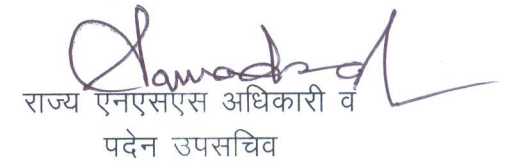 राज्य एनएसएस अधिकारी व
पदेन उपसचिव